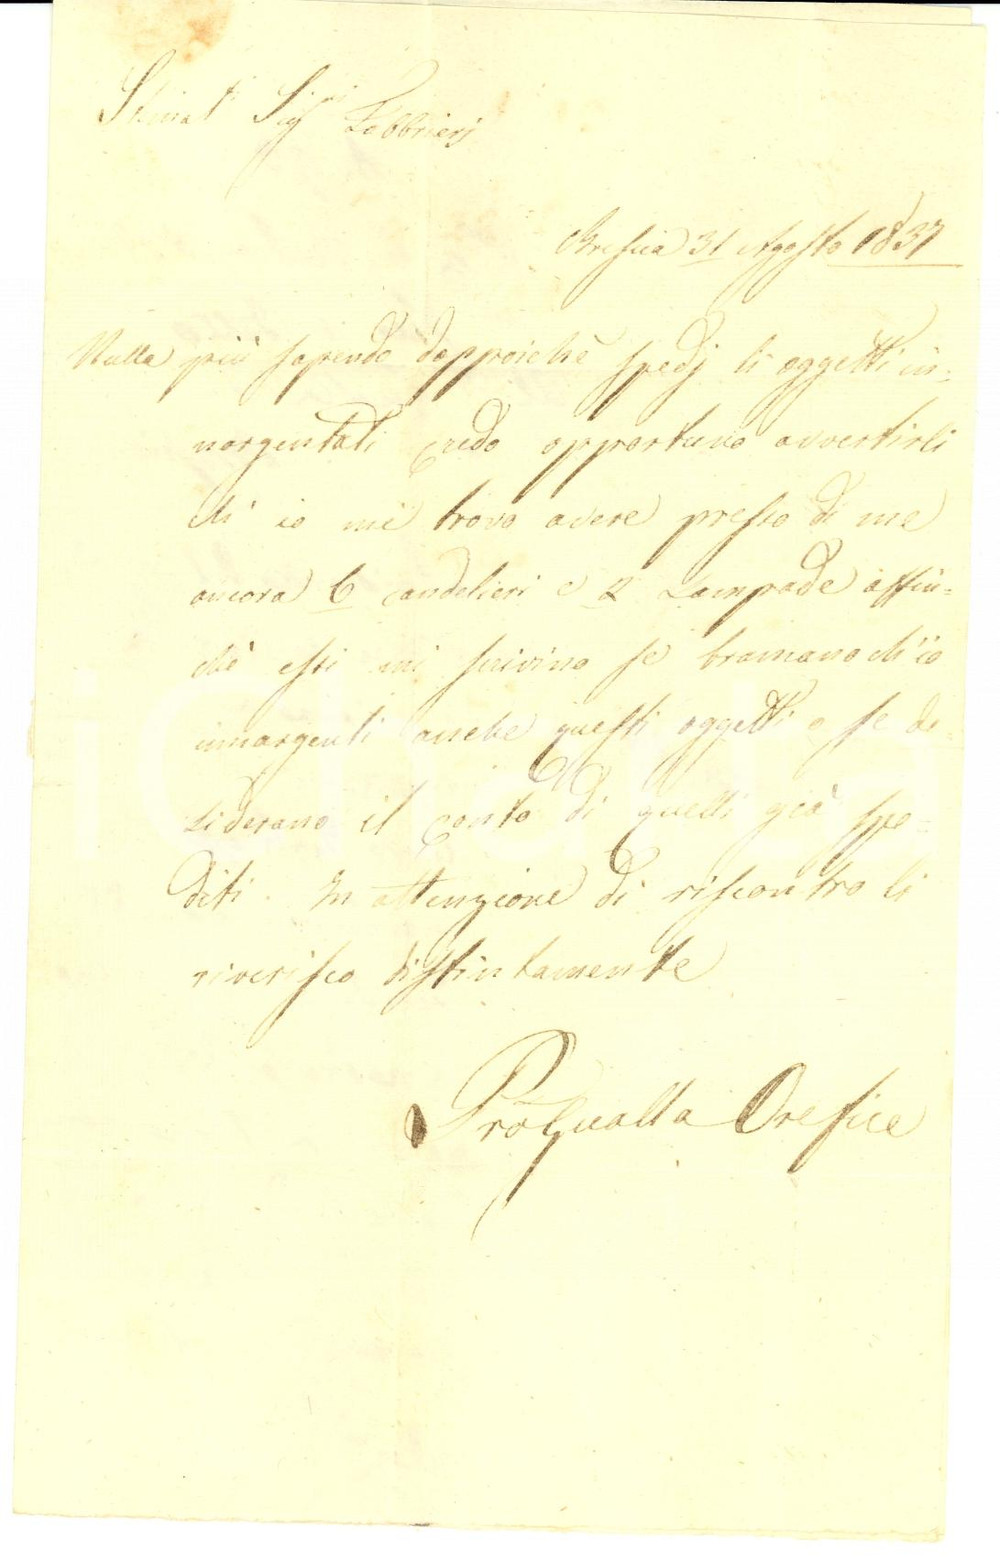 Stimat.i Sig.ri Fabbrieri
Brescia 31 Agosto 1837
Nulla più sapendo dappoichè spedj li oggetti in=
nargentati credo opportuno avvertirli
ch' io mi trovo avere presso di me
ancora 6 candelieri e 2 Lampade affin=
chè essi mi scrivino se bramano ch'io
innargenti anche questi oggetti o se de=
siderano il conto di quelli già spe=
diti. In attenzione di riscontro li
riverisco distintamente
Gualla Orefice